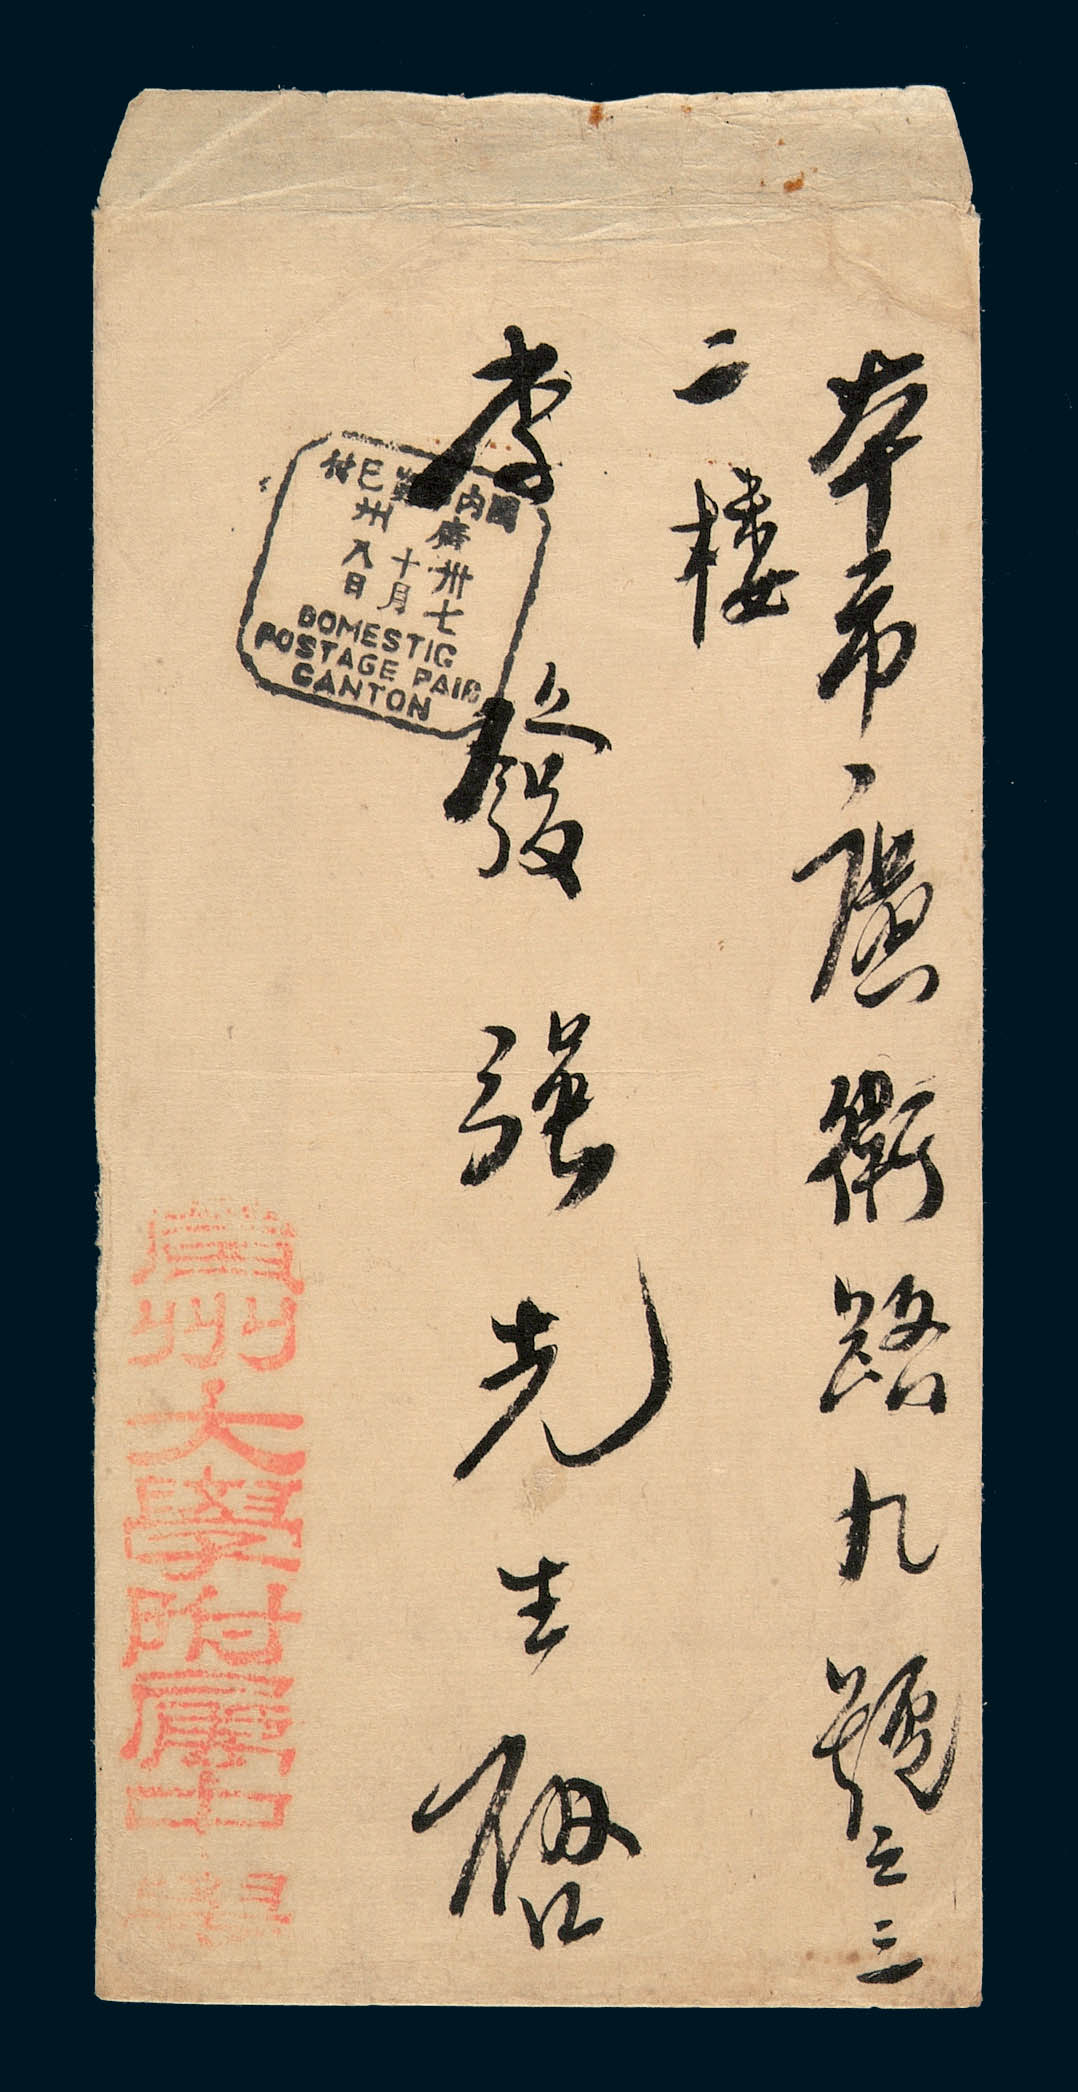 本市廣衛路九號之三
二樓
李發強先生啟
國內資已付
廣州
卅七
十月
八日
DOMESTIC
POSTAGE PAID
CANTON
廣州大學附屬中學